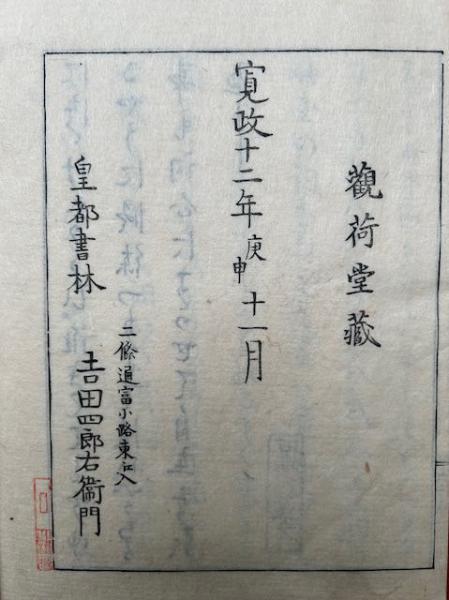 觀荷堂藏
寛政十二年庚申十一月
皇都書林
二條通富小路東江入
吉田四郎右衞門